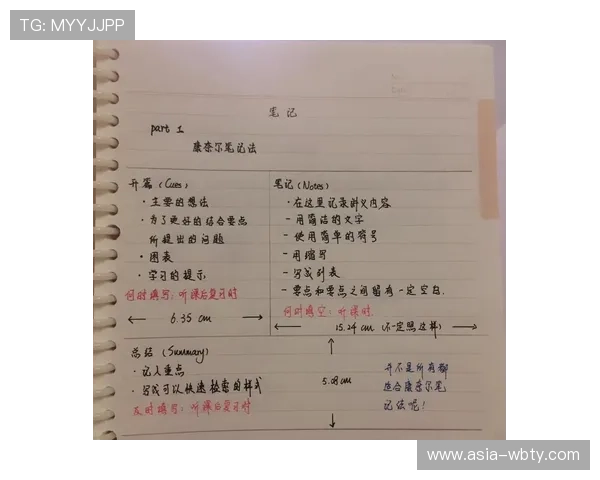 TG: MYYJJPP
笔记
part 1
康奈尔笔记法
开篇 (Cues)
· 主要的想法
· 为了更好的结合要点
所提出的问题
· 图表
· 学习的提示
何时填写: 听课后复习时
6.35 cm
笔记 (Notes)
· 在这里记录讲义内容
- 用简洁的文字
- 使用简单的符号
- 用缩写
- 写成列表
- 要点和要点之间留有一定空白.
何时填空: 听课时
15.24 cm (不一定照这样)
总结 (Summary)
· 记入重点
· 写成可以快速检索的样式
何时填写: 听课后复习时
5.08cm
并不是所有都
适合康奈尔笔
记法呢!
www.asia-wbty.com